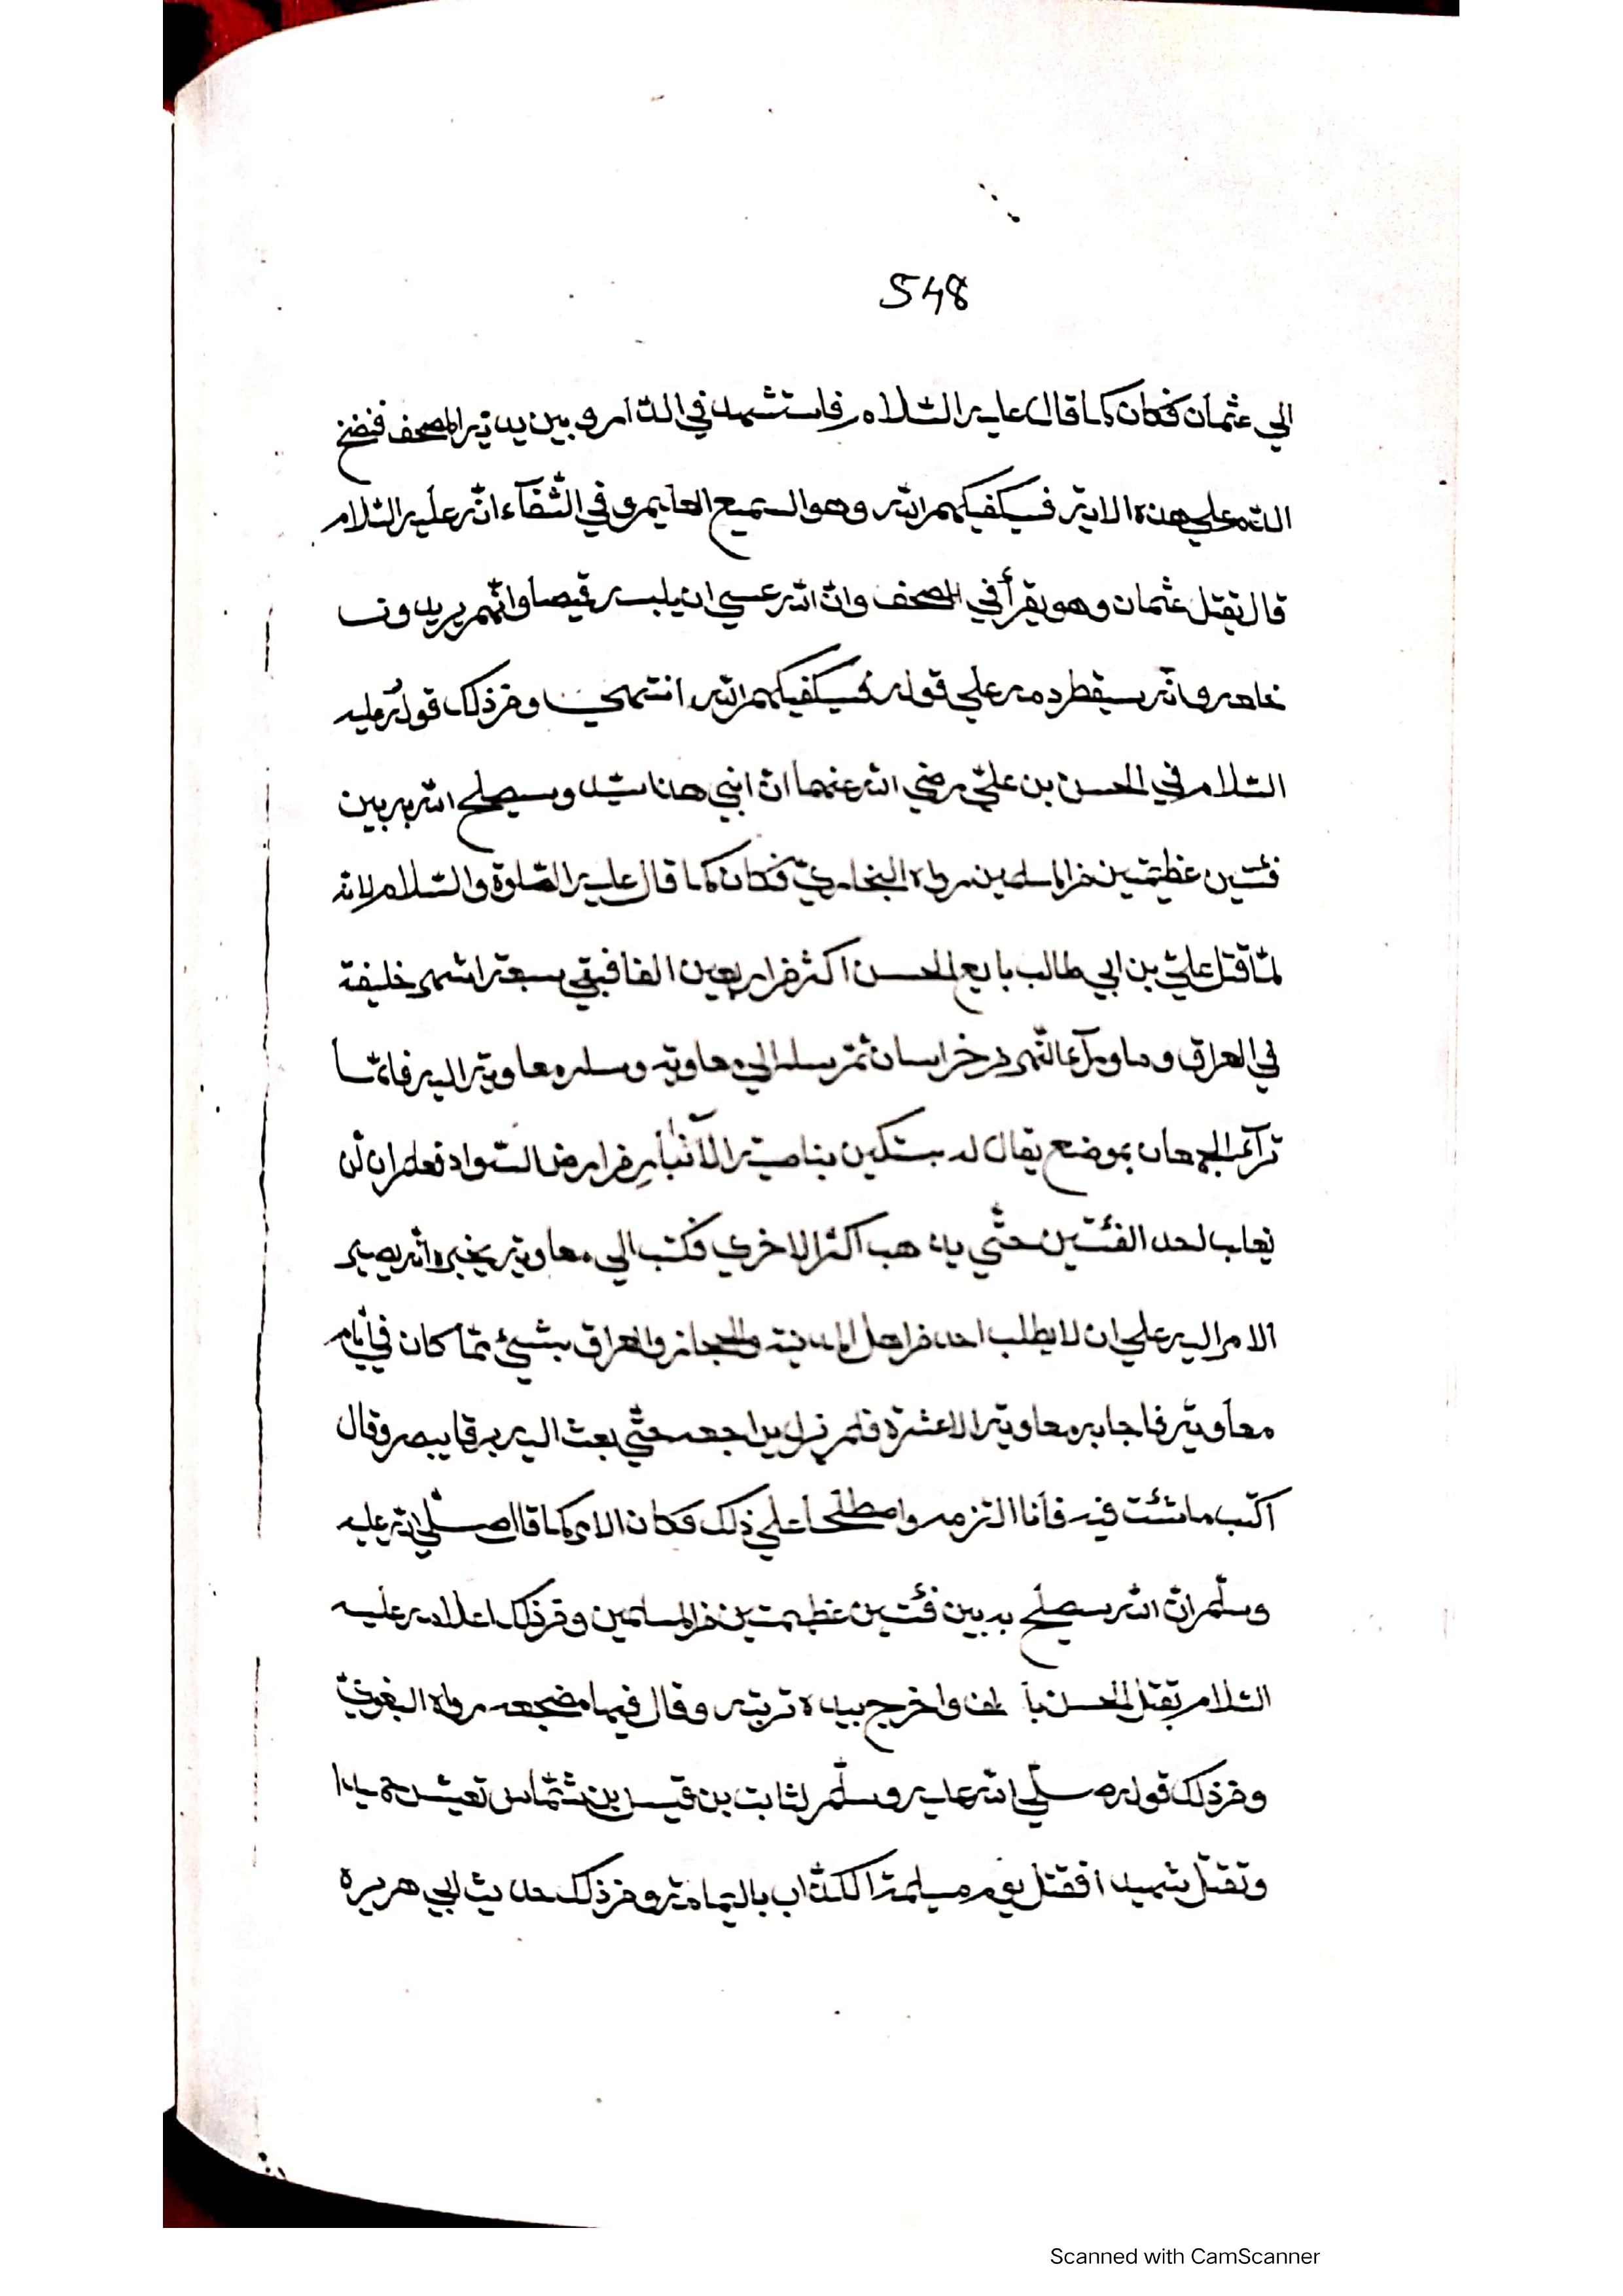 548
الي عثمان فكان كما قال عليه السّلام فاستشهد في الدّار وبين يديه المصحف فنضخ
الدّم علي هذه الاية فسيكفيكهم الله وهو السّميع العليم وفي الشّفآء انّه عليه السّلام
قال يقتل عثمان وهو يقرأ في المصحف وانّ الله عسي ان يلبسه قميصا وانّهم يريدون
خلعه وانّه سيقطر دمه علي قوله فسيكفيكهم الله انتهي ومن ذلك قولُه عليه
السّلام في الحسن بن عليّ رضي الله عنهما انّ ابني هذا سيّد وسيصلح الله به بين
فئتين عظيمتين من المسلمين رواه البخاريّ فكان كما قال عليه الصّلوة والسّلام لانّه
لمّا قتل عليّ بن ابي طالب بايع الحسن اكثر من اربعين الفا فبقي سبعة اشهر خليفة
في العراق وماورآء النّهر من خراسان ثمّ سار الي معاوية وسار معاوية اليه فلمّا
ترآءَ الجمعان بموضع يقال له بستكين بناحية الآنْبار من ارض السّواد فعلم ان لن
يغلب احد الفئتين حتّي يذهب اكثر الاخري فكتب الي معاوية يخبره انّه يصير
الامر اليه علي ان لا يطلب احد من اهل المدينة والحجاز والعراق بشيئ ممّا كان في أيّام
معاوية فاجابه معاوية الا عشرة فلم يزل يراجعه حتّي بعث اليه برق ابيض وقال
اكتب ما شئت فيه فأنا التزمه واصطلحا علي ذلك فكان الامر كما قال صلّي الله عليه
وسلّم انّ الله سيصلح به بين فئتين عظيمتين من المسلمين ومن ذلك اعلامه عليه
السّلام بقتل الحسن بالطف واخرج بيده تربته وقال فيها مضجعه رواه البغويّ
ومن ذلك قوله صلّي الله عليه وسلّم لثابت بن قيس بن شمّاس تعيش حميدا
وتقتل شهيدا فقتل يوم مسيلمة الكذّاب باليمامة ومن ذلك حديث ابي هريرة
Scanned with CamScanner